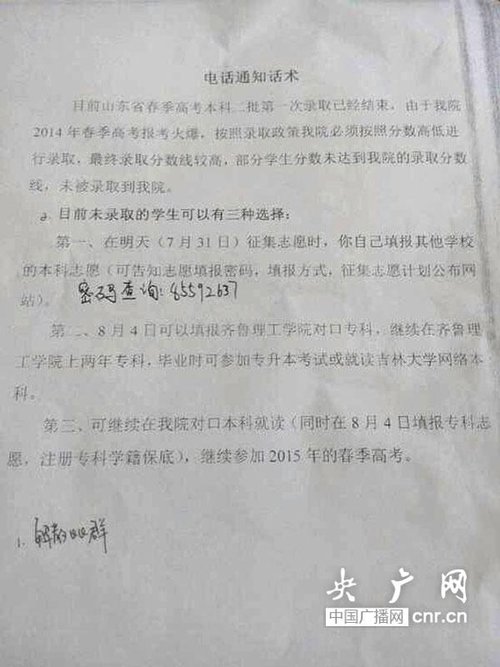 电话通知话术
目前山东省春季高考本科二批第一次录取已经结束，由于我院
2014年春季高考报考火爆，按照录取政策我院必须按照分数高低进
行录取，最终录取分数线较高，部分学生分数未达到我院的录取分数
线，未被录取到我院。
a.目前未录取的学生可以有三种选择：
第一、在明天（7月31日）征集志愿时，你自己填报其他学校
的本科志愿（可告知志愿填报密码，填报方式，征集志愿计划公布网
站）。 密码查询：85592637
第二、8月4日可以填报齐鲁理工学院对口专科，继续在齐鲁理
工学院上两年专科，毕业时可参加专升本考试或就读吉林大学网络本
科。
第三、可继续在我院对口本科就读（同时在8月4日填报专科志
愿，注册专科学籍保底），继续参加2015年的春季高考。
1. 解散 群
央广网
中国广播网 cnr.cn